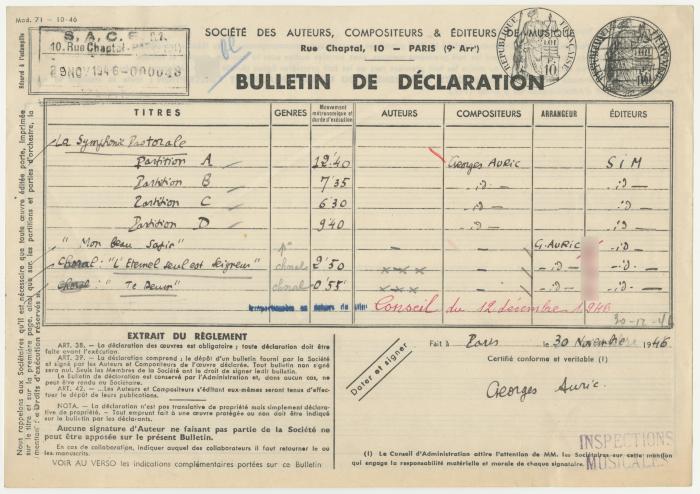 Mod. 71 - 10-46
S. A. C. E. M.
10, Rue Chaptal - PARIS (9e)
29 NOV 1946 - 000048
SOCIÉTÉ DES AUTEURS, COMPOSITEURS & ÉDITEURS DE MUSIQUE
Rue Chaptal, 10 — PARIS (9e Arrt)
RÉPUBLIQUE FRANÇAISE
10
BULLETIN DE DÉCLARATION
TITRES GENRES Mouvement métronomique et durée d'exécution AUTEURS COMPOSITEURS ARRANGEUR ÉDITEURS
La Symphonie Pastorale
Partition A 12'40 Georges AURIC SIM
Partition B 7'35 - id - - id -
Partition C 6 30 - id - - id -
Partition D 9'40 - id - - id -
" Mon beau Sapin" - - G. AURIC - id -
Choral: "L'Eternel seul est Seigneur" choral 2'50 x x x - - id - - id -
Choral: " Te Deum" choral 0'55 x x x - - id - - id -
Conseil du 12 décembre 1946
30-12-46
EXTRAIT DU RÈGLEMENT
ART. 38. — La déclaration des œuvres est obligatoire ; toute déclaration doit être
faite avant l'exécution.
ART. 39. — La déclaration comprend ; le dépôt d'un bulletin fourni par la Société
et signé par les Auteurs et Compositeurs de l'œuvre déclarée. Tout bulletin non signé
sera nul. Seuls les Membres de la Société ont le droit de signer ledit bulletin.
Le Bulletin de déclaration est conservé par l'Administration et, dans aucun cas, ne
peut être rendu au Sociétaire.
ART. 42. — ...Les Auteurs et Compositeurs s'éditant eux-mêmes seront tenus d'effec-
tuer le dépôt de leurs publications.
NOTA. — La déclaration n'est pas translative de propriété mais simplement déclara-
tive de propriété. — Tout emprunt fait à une œuvre protégée ou non doit être indiqué
sur le bulletin par les déclarants.
Aucune signature d'Auteur ne faisant pas partie de la Société ne
peut être apposée sur le présent Bulletin.
En cas de collaboration, indiquer auquel des collaborateurs il faut retourner le ou
les manuscrits.
VOIR AU VERSO les indications complémentaires portées sur ce Bulletin
Dater et signer
Fait à Paris , le 30 Novembre 1946
Certifié conforme et véritable (1)
Georges Auric.
(1) Le Conseil d'Administration attire l'attention de MM. les Sociétaires sur cette mention
qui engage la responsabilité matérielle et morale de chaque signataire.
INSPECTIONS
MUSICALES
Nous rappelons aux Sociétaires qu'il est nécessaire que toute œuvre éditée porte, imprimée
sur le titre et sur la première page, ainsi que sur les partitions et parties d'orchestre, la
mention : « Droits d'exécution réservés »